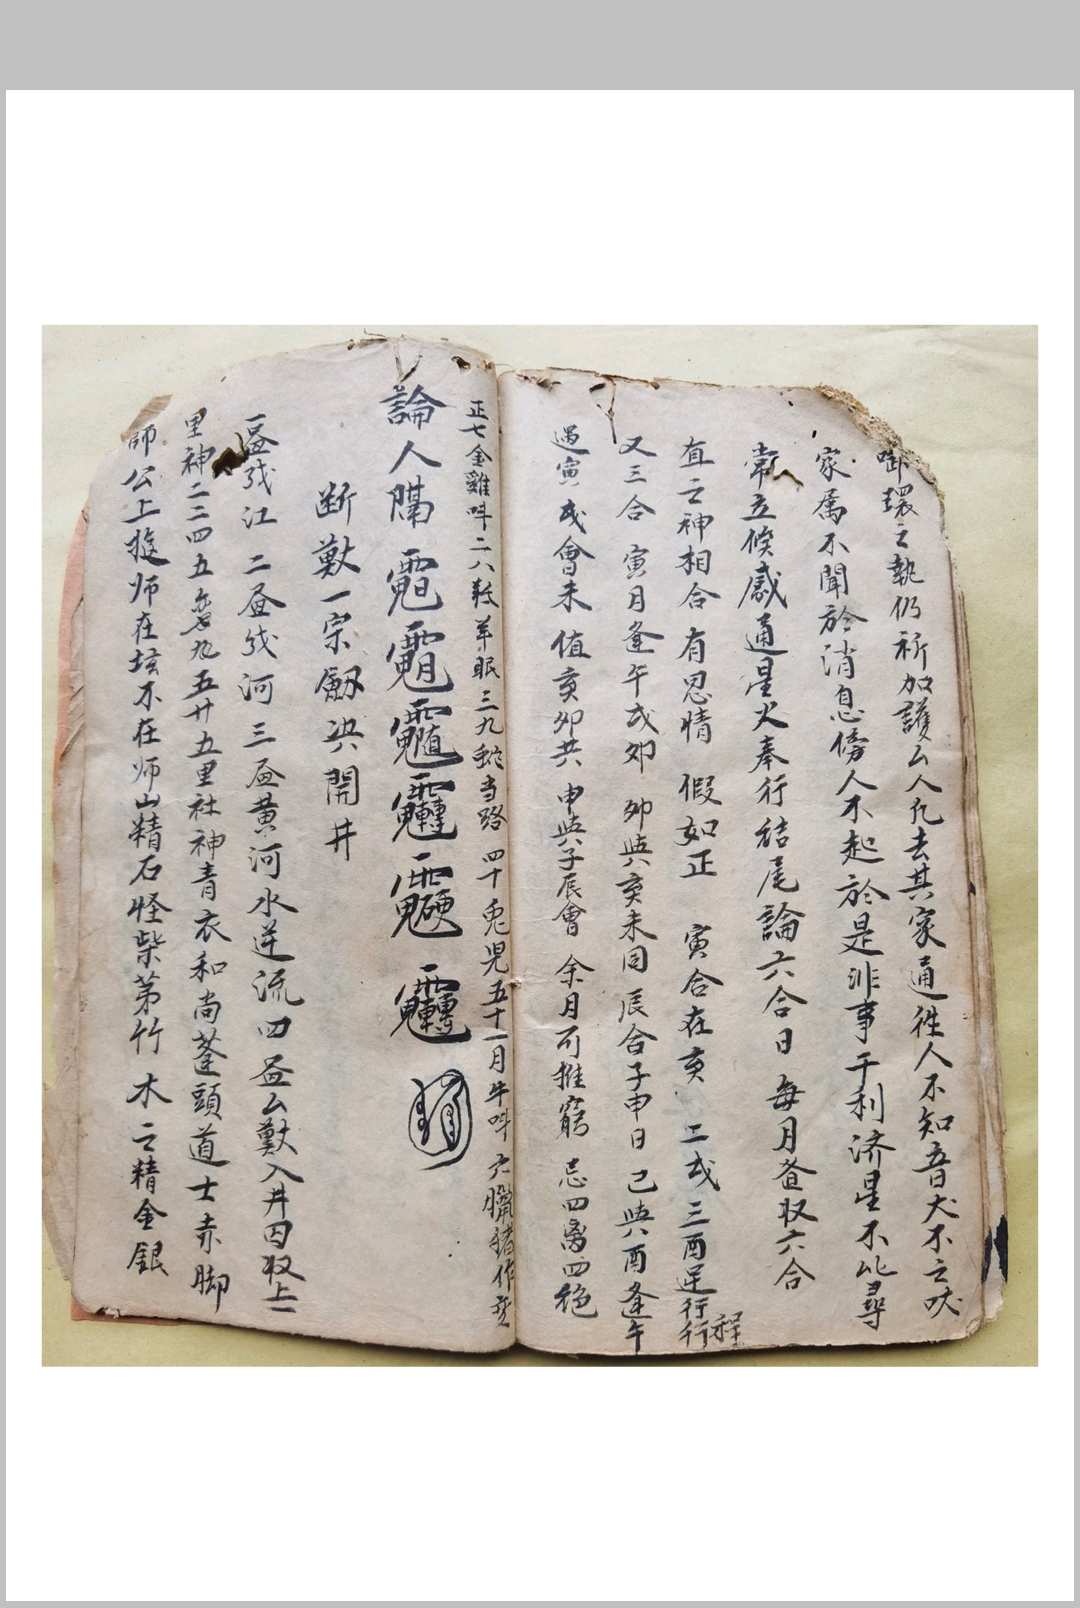 啣環之執仍祈加護厶人凡去其家通徃人不知音犬不之吠
家属不聞於消息傍人不起於是非事干利济星不比尋
常立候感通星火奉行結尾論六合日 每月查収六合
直之神相合 有思情 假如正 寅合在亥 二戌 三酉逆行程
又三合 寅月逢午戌卯 卯與亥未同 辰合子申日 巳與酉逢午
遇寅戌會未 值亥卯共 申與子辰會 余月可推窮 忌四离四絶
正七金雞呌二八羊眠三九蛇当路 四十兎兒五十一月牛呌 六臘猪作
論人隔
断獸一宗劍决開井
江 二 河 三 黄河水逆流四 厶獸入井囚収上
里神二三四五 九五廿五里社神青衣和尚蓬頭道士赤脚
師公上 师在坛不在师山精石怪柴茅竹木之精金銀